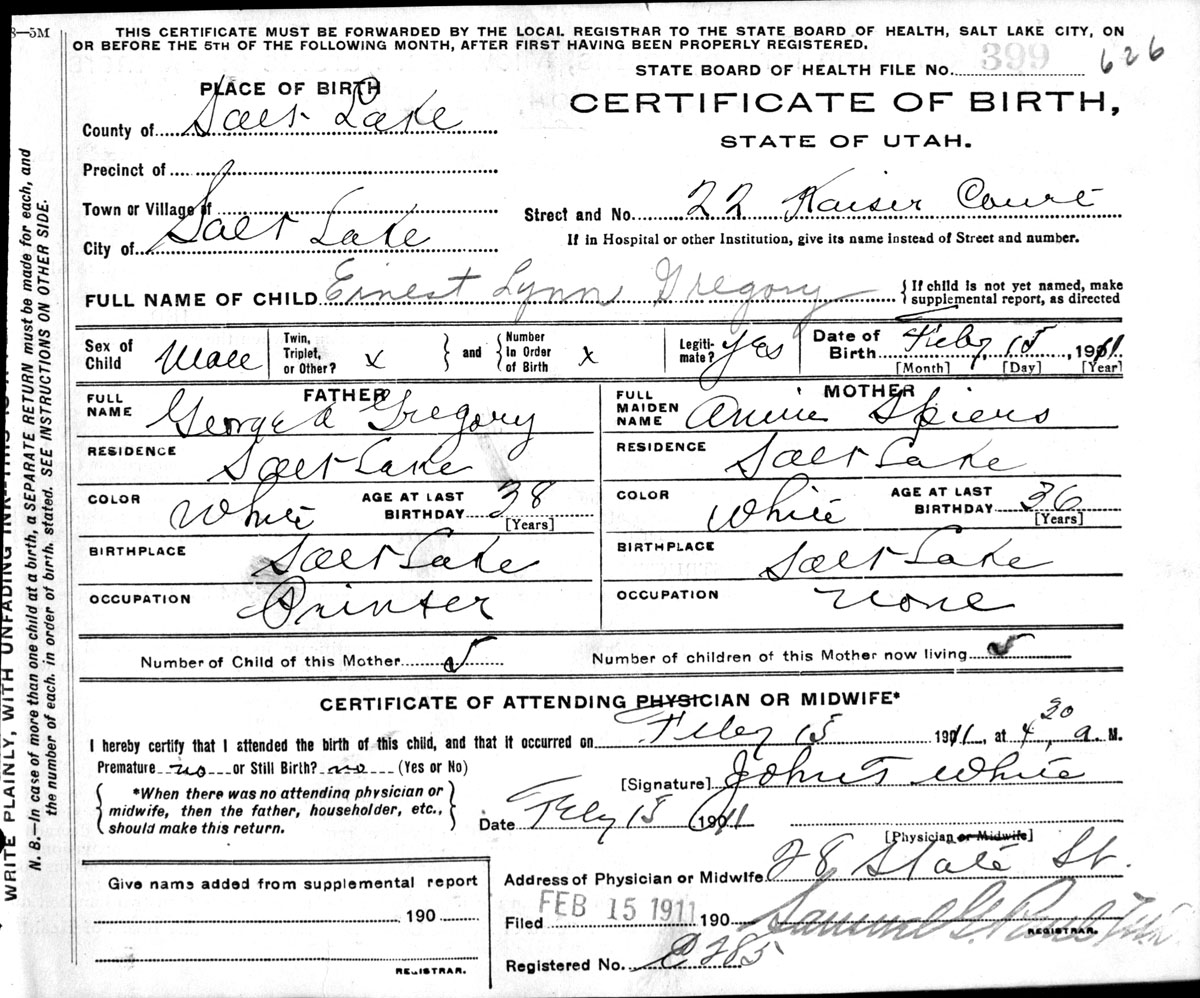 8—5M
THIS CERTIFICATE MUST BE FORWARDED BY THE LOCAL REGISTRAR TO THE STATE BOARD OF HEALTH, SALT LAKE CITY, ON
OR BEFORE THE 5TH OF THE FOLLOWING MONTH, AFTER FIRST HAVING BEEN PROPERLY REGISTERED.
STATE BOARD OF HEALTH FILE No. 399 626
PLACE OF BIRTH
CERTIFICATE OF BIRTH,
STATE OF UTAH.
County of Salt Lake
Precinct of
Town or Village of
Street and No. 22 Kaiser Court
City of Salt Lake
If in Hospital or other Institution, give its name instead of Street and number.
FULL NAME OF CHILD Ernest Lynn Gregory { If child is not yet named, make
supplemental report, as directed
Sex of Child Male
Twin, Triplet, or Other? x } and { Number In Order of Birth x
Legitimate? yes
Date of Birth Feby, 15, 1911
[Month] [Day] [Year]
FATHER
FULL NAME George A Gregory
RESIDENCE Salt Lake
COLOR White AGE AT LAST BIRTHDAY 38 [Years]
BIRTHPLACE Salt Lake
OCCUPATION Printer
MOTHER
FULL MAIDEN NAME Annie Spiers
RESIDENCE Salt Lake
COLOR White AGE AT LAST BIRTHDAY 36 [Years]
BIRTHPLACE Salt Lake
OCCUPATION None
Number of Child of this Mother 5 Number of children of this Mother now living 5
CERTIFICATE OF ATTENDING PHYSICIAN OR MIDWIFE*
I hereby certify that I attended the birth of this child, and that it occurred on Feby 15 1911, at 4 20, a. M.
Premature no or Still Birth? no (Yes or No)
[Signature] John T White
{ *When there was no attending physician or
midwife, then the father, householder, etc.,
should make this return. }
Date Feby 15 1911
[Physician or Midwife]
Address of Physician or Midwife 28 State St.
Filed FEB 15 1911 190 Samuel G. Paul
REGISTRAR.
Registered No. 285
Give name added from supplemental report
190
REGISTRAR.
WRITE PLAINLY, WITH UNFADING INK—THIS IS A
N. B.—In case of more than one child at a birth, a SEPARATE RETURN must be made for each, and
the number of each, in order of birth, stated. SEE INSTRUCTIONS ON OTHER SIDE.